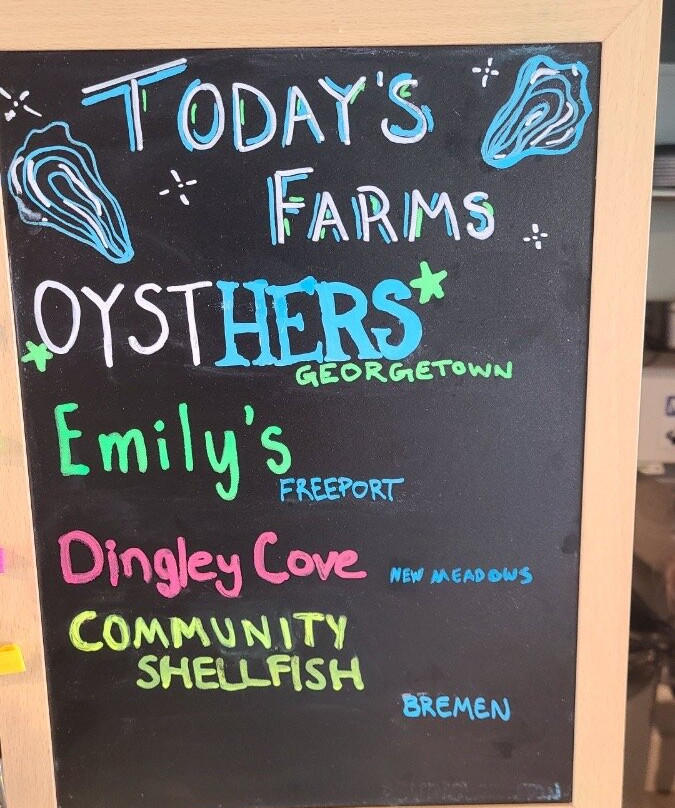 TODAY'S
FARMS
OYSTHERS
GEORGETOWN
Emily's
FREEPORT
Dingley Cove NEW MEADOWS
COMMUNITY
SHELLFISH
BREMEN